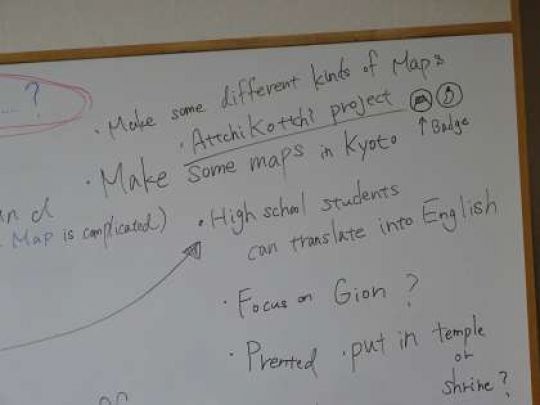 ... ?
· Make some different kinds of Maps
· Attchi Kottchi project
↑ Badge
· Make some maps in Kyoto
and
Map is complicated)
· High school students
can translate into English
· Focus on Gion ?
· Prented · put in temple
or
shrine ?